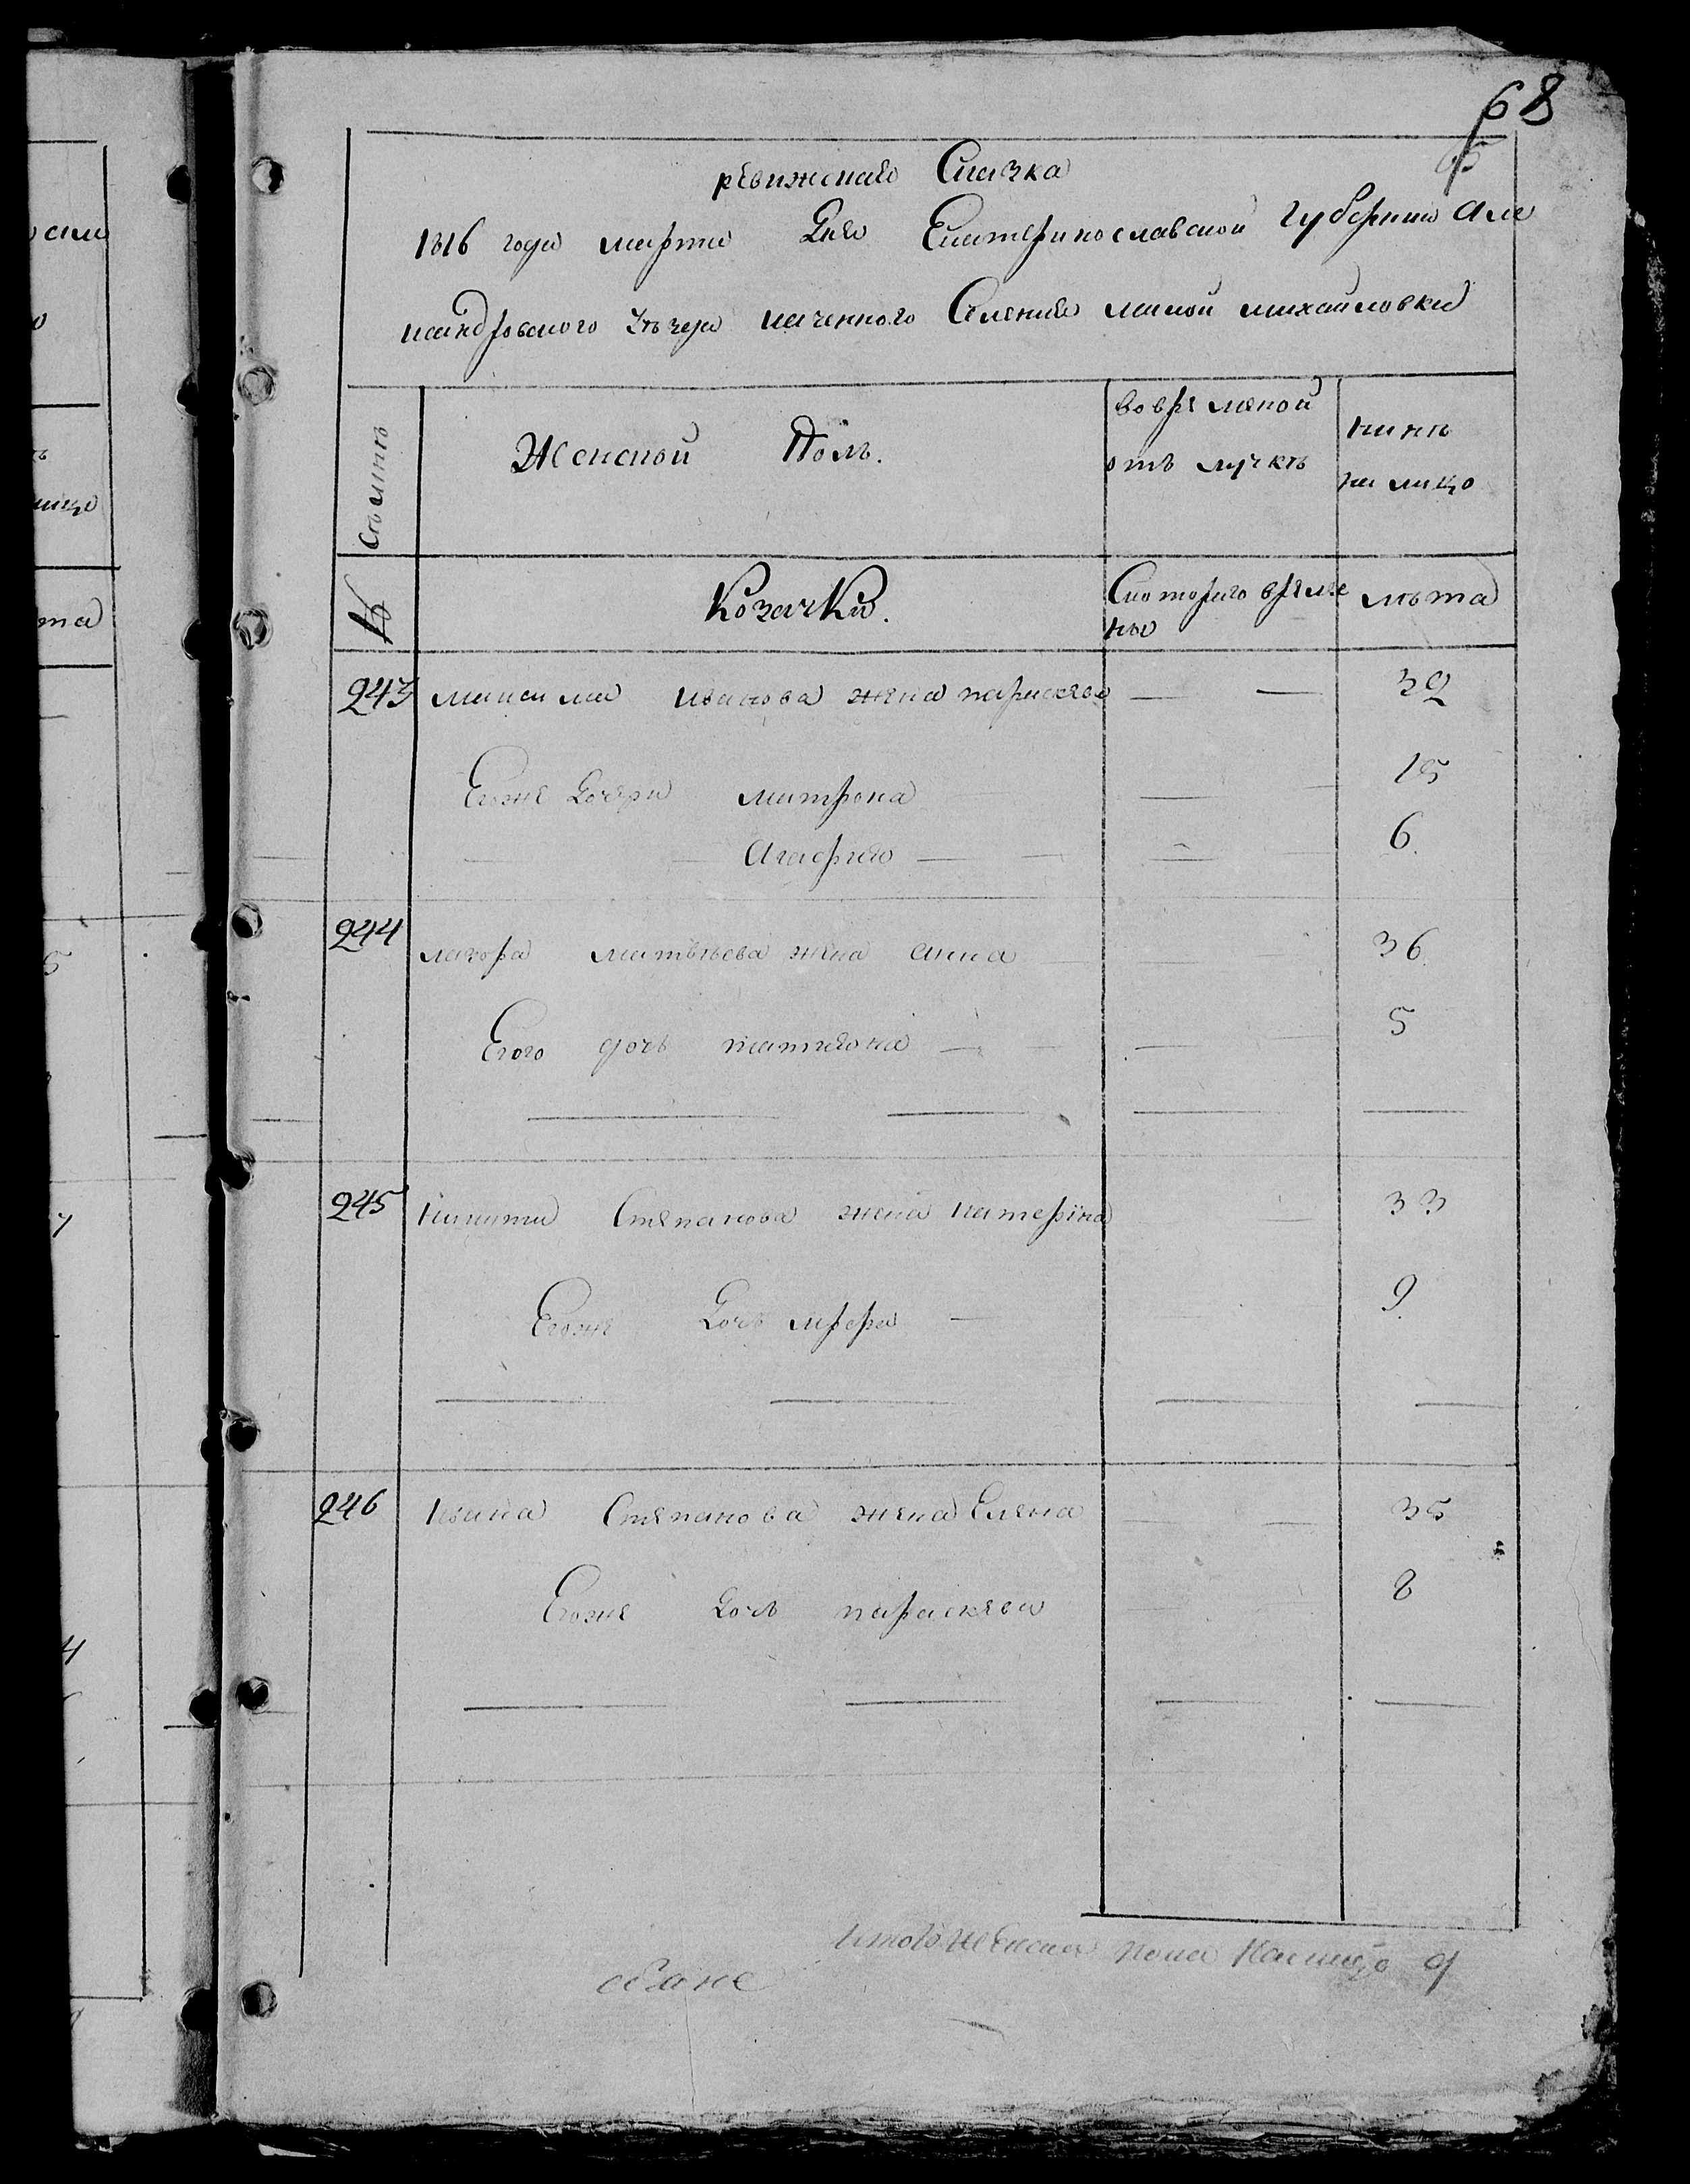 68
ревижская Скаска
1816 года марта дня Екатеринославской губернии Але
ксандровского уезда казенного Селения малой михайловки
Семьи
Женской Полъ.
Вовременой
отъ лучкѣ
нинѣ
на лицо
№
Козачки.
Скоторого време
ны
лѣта
243 максима иванова жена параскевя — — 32
Егоже дочери матрона — 15
Агафия — — 6.
244 лазора матвѣева жена анна 36.
Егого дочь — — 5
245 никиты Степанова жена катерїна — 33
Егоже дочь — 9.
246 Ивана Степанова жена Елена — — 35
Егоже дочь параскева 8
итого женска пола налицо 9